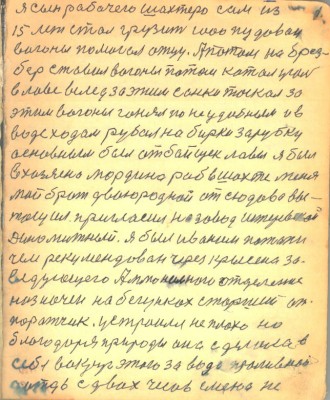 1.
я сын рабочего шахтера сам из
15 лет стал грузить 1000 пудовая
вагоны помогал отцу. А потом на брез-
бер ставил вагоны потом катал угля
в лаве вслед за этим санки таскал за
этим вагоны гонял по неудобным и в
водсходам рубал на бирки зарубку
основным был отбайщик лавы я был
в хозяина мордина раб в шахте меня
мой брат двоюродной отсюдова вы-
тащил пригласил на завод
Динамитный. я был
чем рекумендован через за-
ведующего отделение
назначен на бегунках старший ап-
поратчик. устроили не плохо но
благодоря природы она сделала в
себя вокруг этого завода проливной
дождь с двох часов смена не